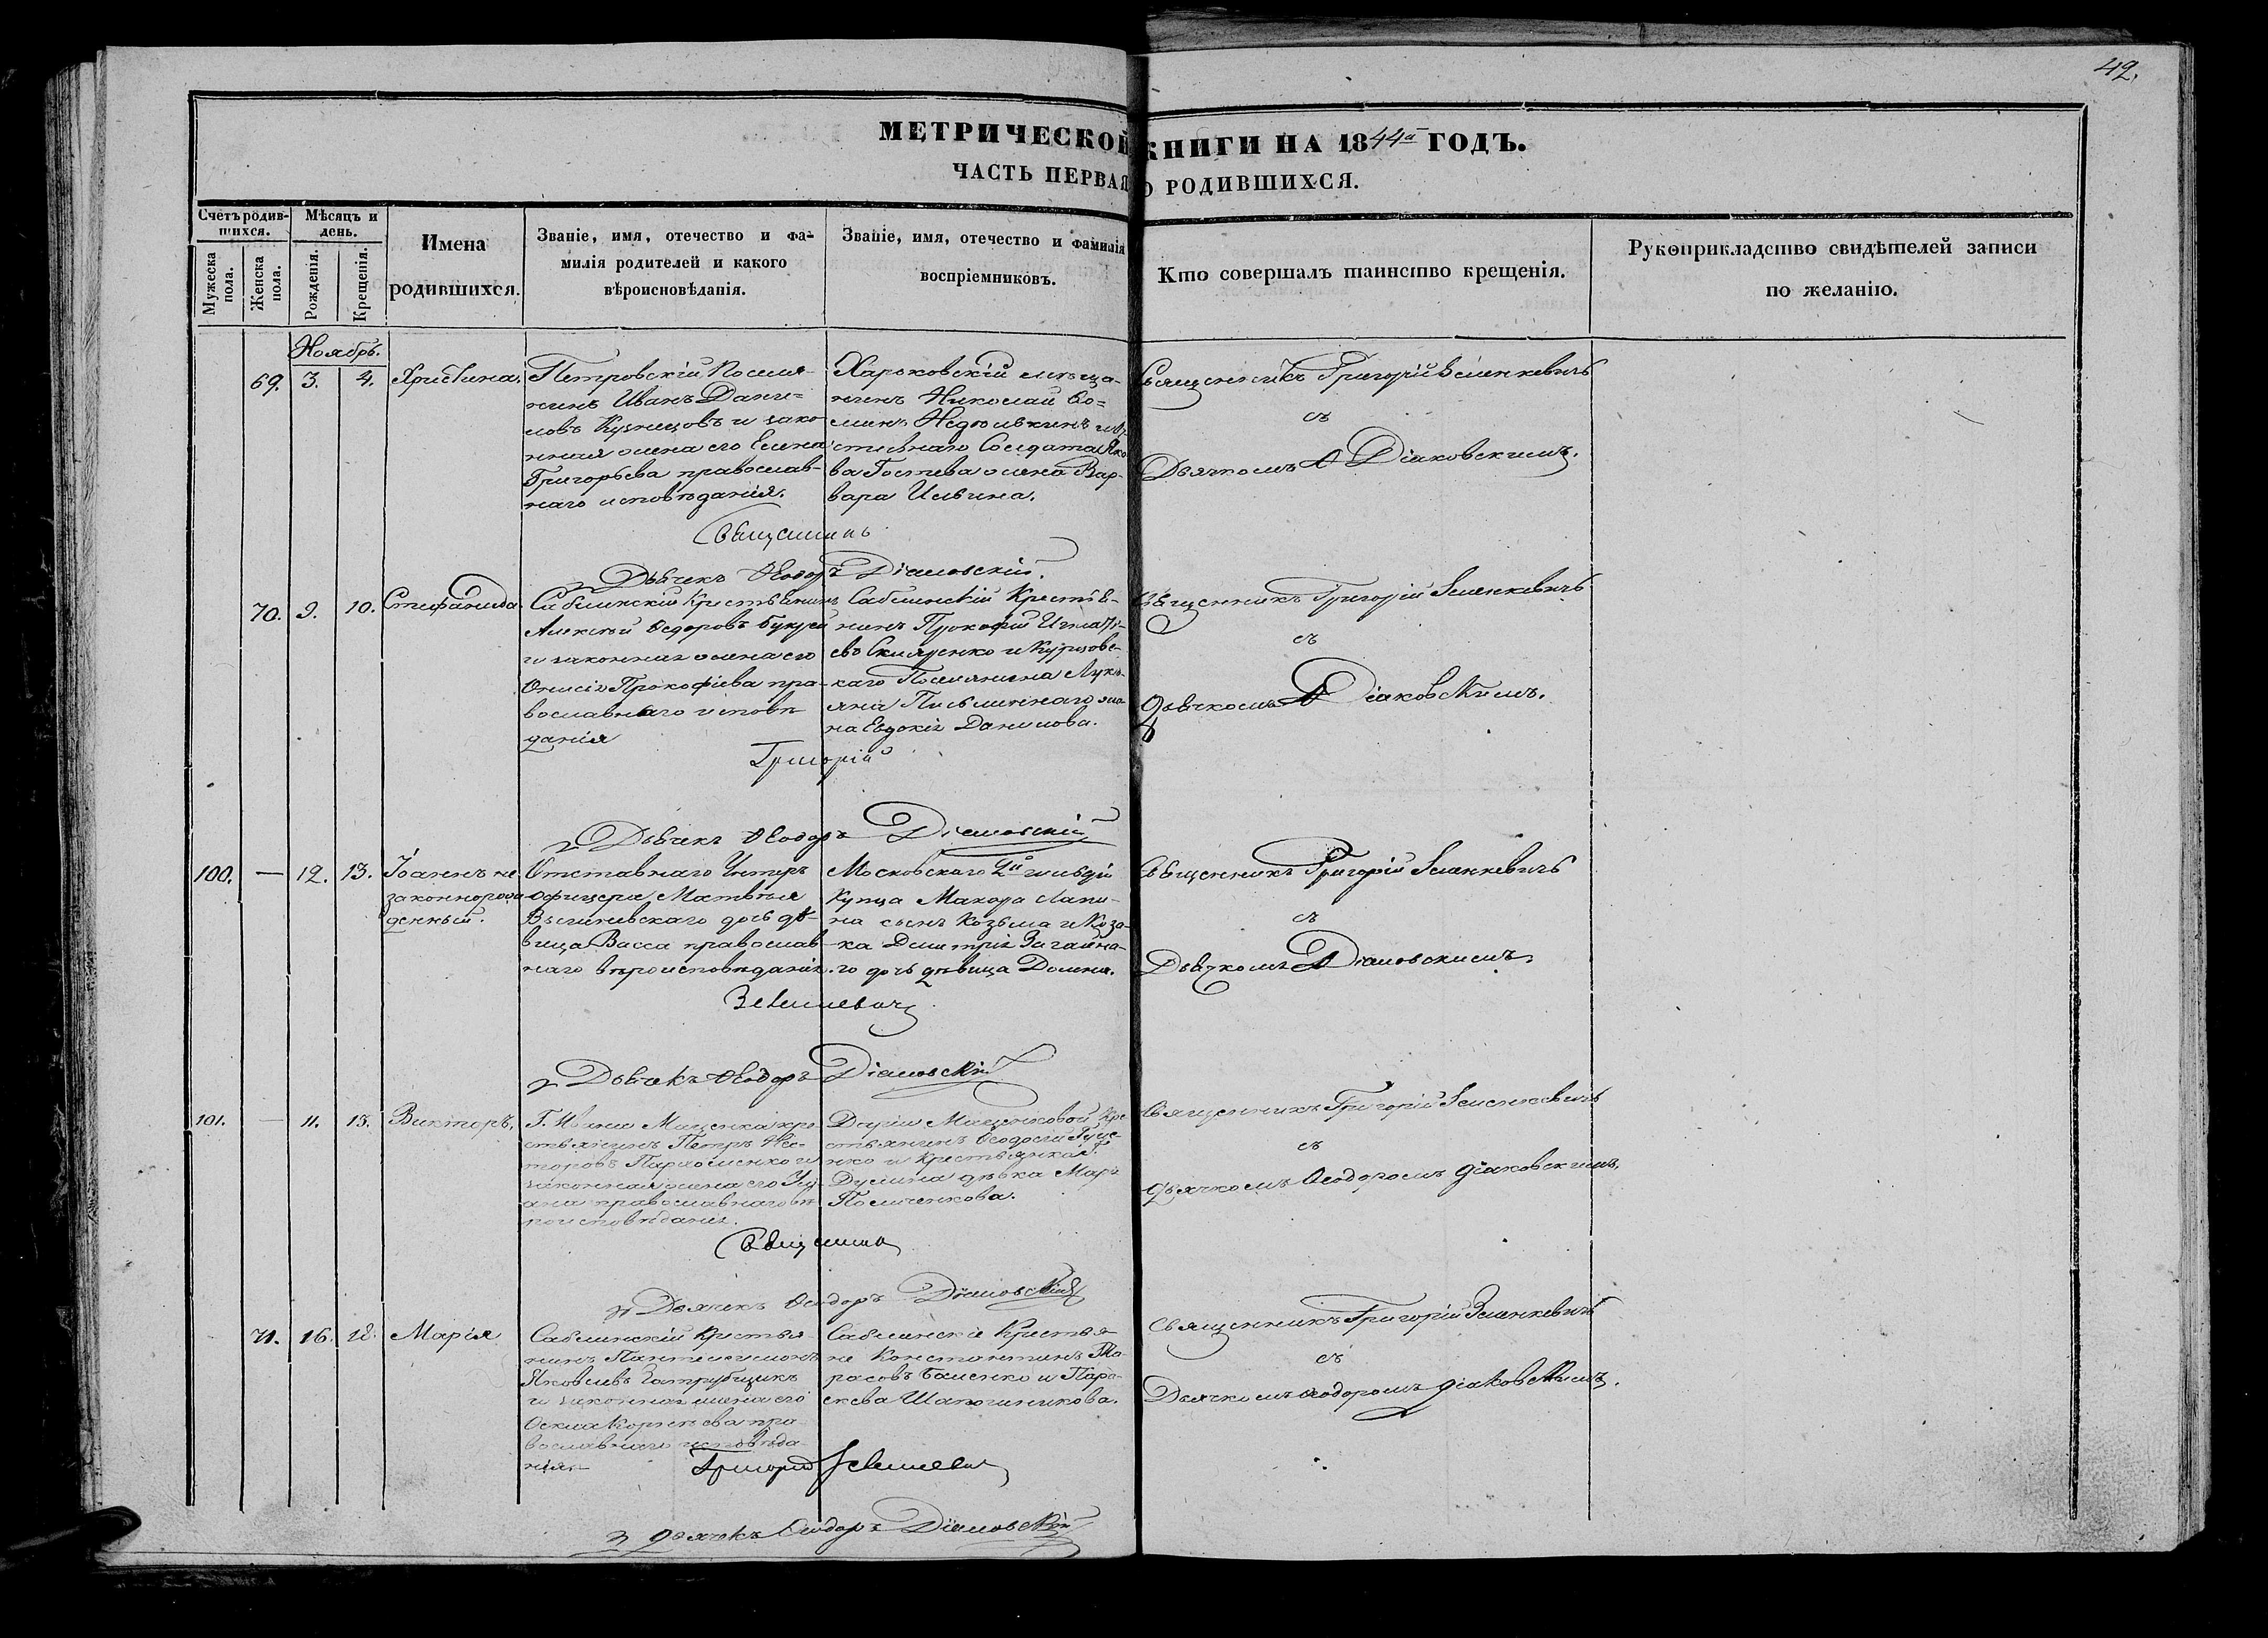 42.
МЕТРИЧЕСКОЙ КНИГИ НА 1844й ГОДЪ.
ЧАСТЬ ПЕРВАЯ О РОДИВШИХСЯ.
Счетъ родив-
шихся.
Мѣсяцъ и
день.
Мужеска
пола.
Женска
пола.
Рожденія.
Крещенія.
Имена
родившихся.
Званіе, имя, отечество и фа-
милія родителей и какого
вѣроисповѣданія.
Званіе, имя, отечество и фамилія
воспріемниковъ.
Кто совершалъ таинство крещенія.
Рукоприкладство свидѣтелей записи
по желанію.
Ноябрь.
69. 3. 4. Христина.
Петровскій Поселя-
нинъ Иванъ Дани-
ловъ Кузнецовъ и зако
нная жена его Елена
Григорьева православ-
наго исповѣданія.
Харьковскій мѣща-
нинъ Николай
солдата Яко
ва Гостева жена Вар-
вара Ильина.
Священникъ Григорій Зеленкевичъ
съ
Дьячкомъ Ѳ Діаковскимъ.
Священникъ
Дьячекъ Ѳеодоръ Діаковскій.
70. 9. 10. Стефанида.
Саблинскій Крестьянинъ
Алексѣй Ѳедоровъ
и законная жена его
Онисія Прокофіева пра-
вославнаго исповѣ
данія
Саблинскій Крестья-
нинъ Прокофій Игнать-
евъ и
каго Поселянина Лукь-
яна Письменнаго же-
на Евдокія Данилова.
Священникъ Григорій Зеленкевичъ
съ
дьячкомъ Ѳ Діаковскимъ.
Григорій
Дьячекъ Ѳеодоръ Діаковскій
100. — 12. 13. Іоаннъ не
законнорож
денный.
Отставнаго Унтеръ
офицера Матвѣя
дочь дѣ-
вица Васса православ
наго вѣроисповѣданія.
Московскаго 2й гильдіи
Купца Макара Лапи-
на сынъ Козьма и Коза-
ка Димитрія Загайна-
го дочь дѣвица Домна.
Священникъ Григорій Зеленкевичъ
съ
Дьячкомъ Ѳ Діаковскимъ.
Зеленкевичъ
Дьячекъ Ѳеодоръ Діаковскій
101. — 11. 13. Викторъ.
Г. Ивана Мищенка кре
стьянинъ Петръ Нес-
торовъ Пархоменко и
законная жена его Уль-
яна православнаго вѣ
роисповѣданія.
Дарьи Мищенковой Кре
стьянинъ Ѳеодосій
и крестьянка Г.
Дунина дѣвка Марія
Священникъ Григорій Зеленкевичъ
съ
дьячкомъ Ѳеодоромъ Діаковскимъ.
Священникъ
Дьячекъ Ѳеодоръ Діаковскій
71. 16. 18. Марія
Саблинскій Крестья-
нинъ Пантелеимонъ
Яковлевъ
и законная жена его
пра-
вославнаго исповѣда-
нія.
Саблинскіе Крестья-
не Константинъ Та-
расовъ Баленко и Пара-
скева Шапошникова.
Священникъ Григорій Зеленкевичъ
съ
Дьячкомъ Ѳеодоромъ Діаковскимъ.
Григорій Зеленкевичъ
дьячекъ Ѳеодоръ Діаковскій